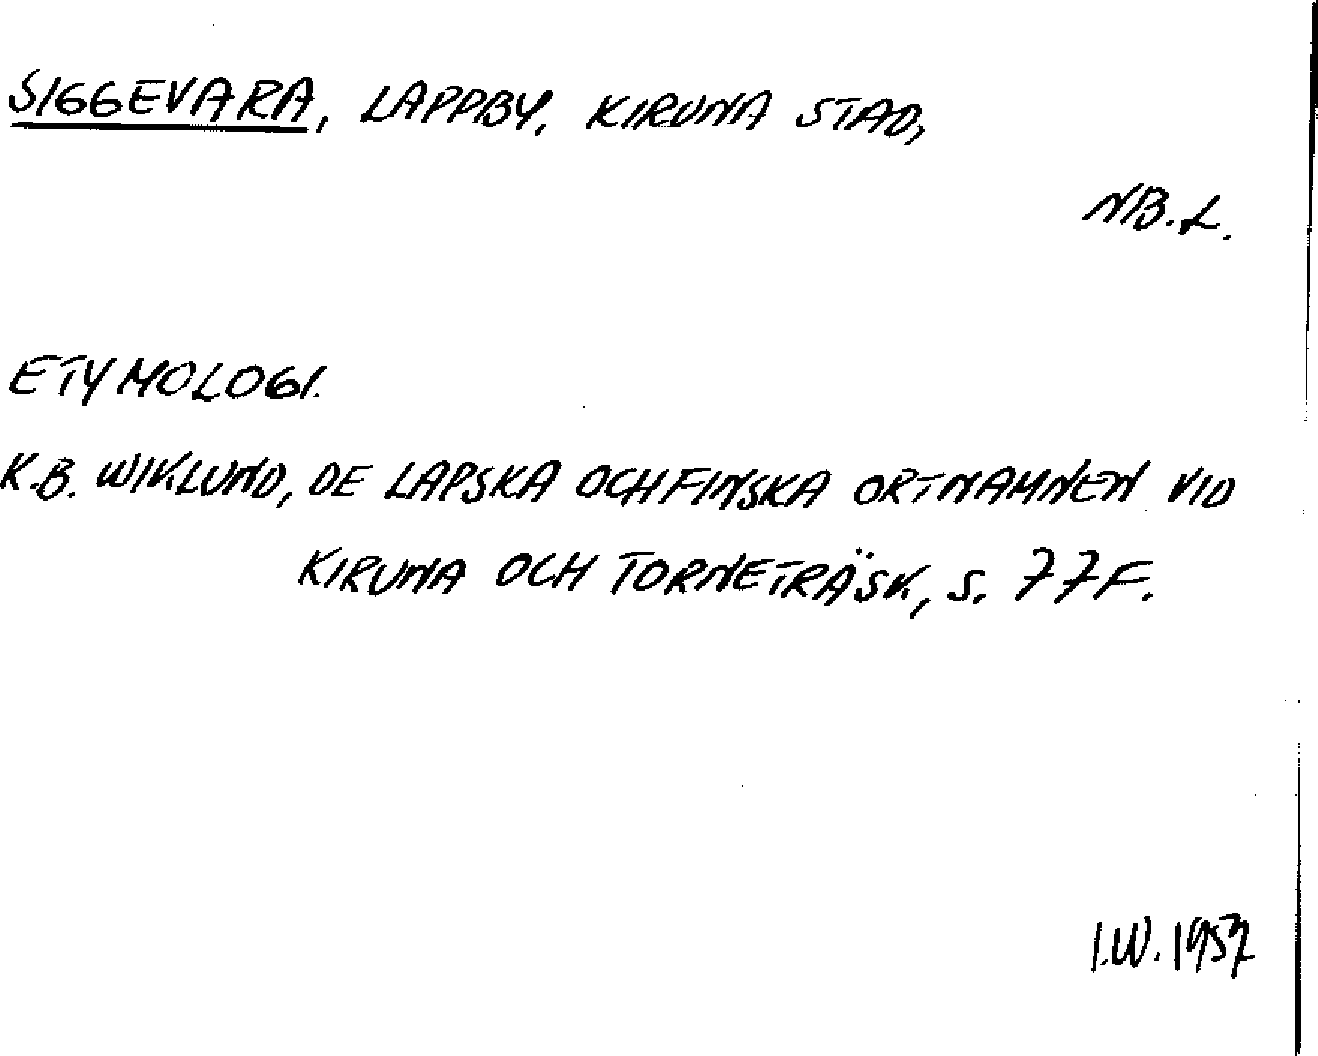 SIGGEVARA, LAPPBY, KIRUNA STAD,
NB.L.
ETYMOLOGI.
K.B. WIKLUND, DE LAPSKA OCH FINSKA ORTNAMNEN VID
KIRUNA OCH TORNETRÄSK, S. 77F.
I.W. 1957